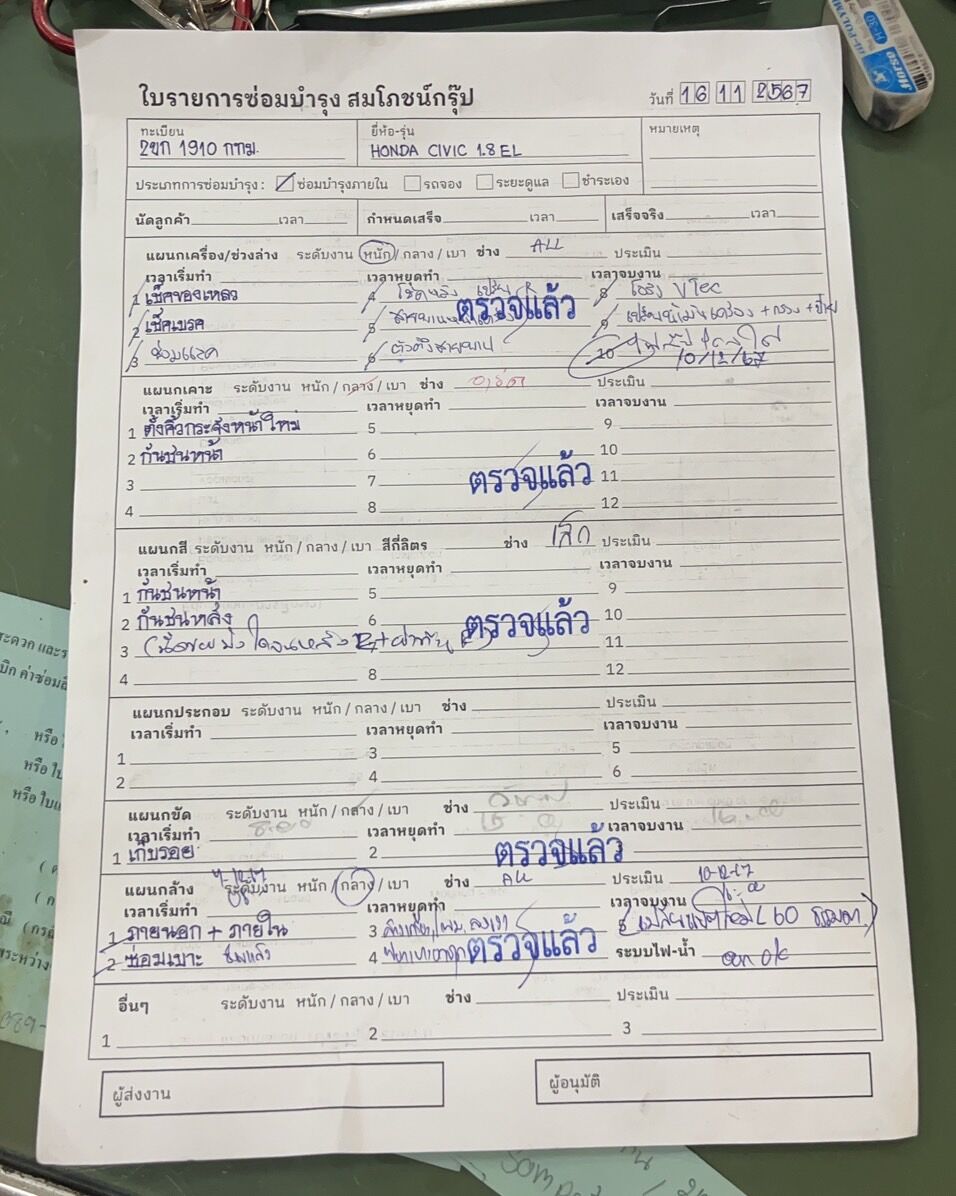 ใบรายการซ่อมบำรุง สมโภชน์กรุ๊ป
วันที่ 16 11 2567
ทะเบียน ยี่ห้อ-รุ่น หมายเหตุ
2ขก 1910 กทม. HONDA CIVIC 1.8 EL
ประเภทการซ่อมบำรุง : ซ่อมบำรุงภายใน รถจอง ระยะดูแล ชำระเอง
นัดลูกค้า เวลา กำหนดเสร็จ เวลา เสร็จจริง เวลา
แผนกเครื่อง/ช่วงล่าง ระดับงาน หนัก / กลาง / เบา ช่าง ALL ประเมิน
เวลาเริ่มทำ เวลาหยุดทำ เวลาจบงาน
1 เช็คของเหลว 4 8 โอริง VTec
ตรวจแล้ว
2 เช็คเบรค 5 9 เปลี่ยนน้ำมันเครื่อง + กรอง +
3 ซ่อมแรค 6 ตัวตั้งสายพาน 10
10/12/67
แผนกเคาะ ระดับงาน หนัก / กลาง / เบา ช่าง ประเมิน
เวลาเริ่มทำ เวลาหยุดทำ เวลาจบงาน
1 ตั้งคิ้วกระจังหน้าใหม่ 5 9
2 กันชนหน้า 6 10
3 7 ตรวจแล้ว 11
4 8 12
แผนกสี ระดับงาน หนัก / กลาง / เบา สีกี่ลิตร ช่าง เล็ก ประเมิน
เวลาเริ่มทำ เวลาหยุดทำ เวลาจบงาน
1 กันชนหน้า 5 9
2 กันชนหลัง 6 ตรวจแล้ว 10
3 11
4 8 12
แผนกประกอบ ระดับงาน หนัก / กลาง / เบา ช่าง ประเมิน
เวลาเริ่มทำ เวลาหยุดทำ เวลาจบงาน
1 3 5
2 4 6
แผนกขัด ระดับงาน หนัก / กลาง / เบา ช่าง ประเมิน
เวลาเริ่มทำ เวลาหยุดทำ เวลาจบงาน
1 เก็บรอย 2 ตรวจแล้ว
แผนกล้าง ระดับงาน หนัก / กลาง / เบา ช่าง ALL ประเมิน 10-12-67
เวลาเริ่มทำ เวลาหยุดทำ เวลาจบงาน
1 ภายนอก + ภายใน 3 5
2 ซ่อมเบาะ ซ่อมแล้ว 4 ตรวจแล้ว ระบบไฟ-น้ำ ok
อื่นๆ ระดับงาน หนัก / กลาง / เบา ช่าง ประเมิน
1 2 3
ผู้ส่งงาน ผู้อนุมัติ
Horse
H-30